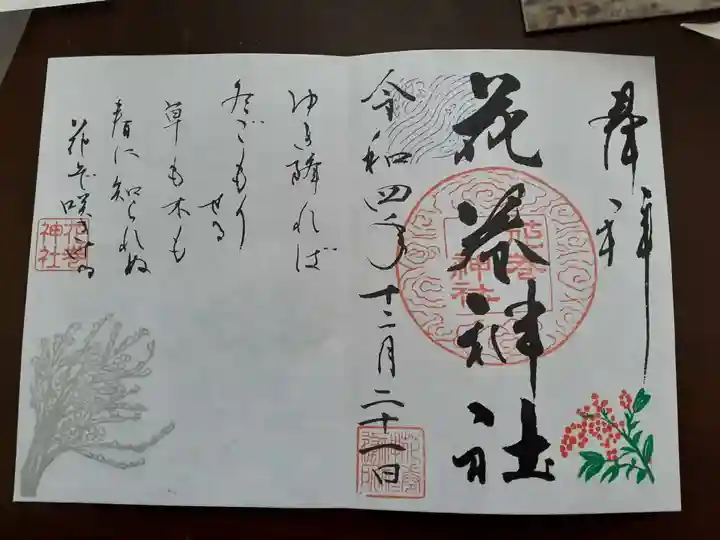 奉拝
花巻神社
花巻神社
令和四年十二月二十一日
ゆき降れば
冬ごもり
せる
草も木も
春に知られぬ
花ぞ咲きける
花巻神社